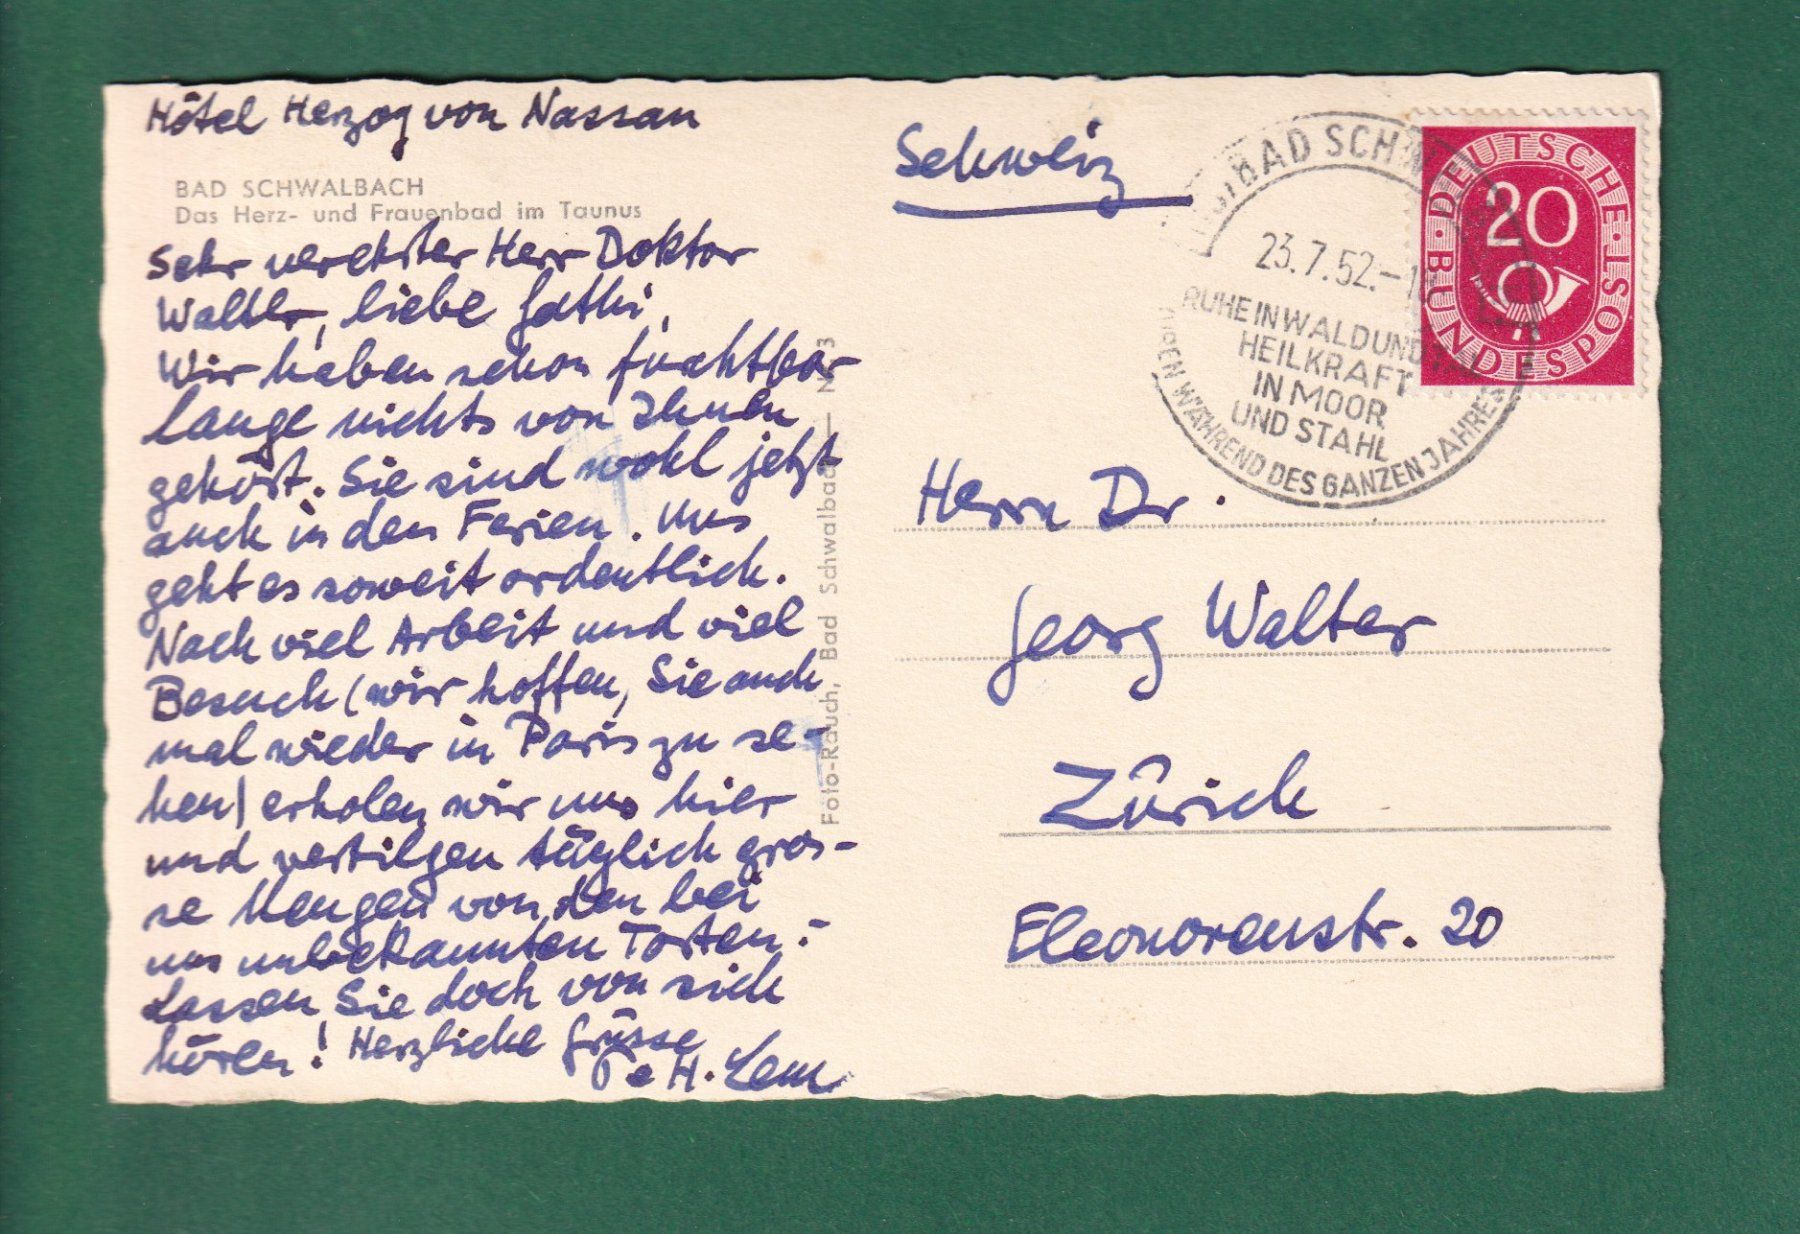 Hôtel Herzog von Nassau
BAD SCHWALBACH
Das Herz- und Frauenbad im Taunus
Sehr verehrter Herr Doktor
Walter, liebe
Wir haben schon furchtbar
lange nichts von Ihnen
gehört. Sie sind wohl jetzt
auch in den Ferien. Uns
geht es soweit ordentlich.
Nach viel Arbeit und viel
Besuch (wir hoffen, Sie auch
mal wieder in Paris zu se-
hen) erholen wir uns hier
und vertilgen täglich gros-
se Mengen von den bei
uns unbekannten Torten.-
Lassen Sie doch von sich
hören! Herzliche Grüsse
H.
Foto-Rauch, Bad Schwalbach
Schweiz
BAD SCHW
23.7.52.-
RUHE IN WALD UND
HEILKRAFT
IN MOOR
UND STAHL
WÄHREND DES GANZEN JAHRES
DEUTSCHE POST
20
BUNDESPOST
Herrn Dr.
Georg Walter
Zürich
Eleonorenstr. 20